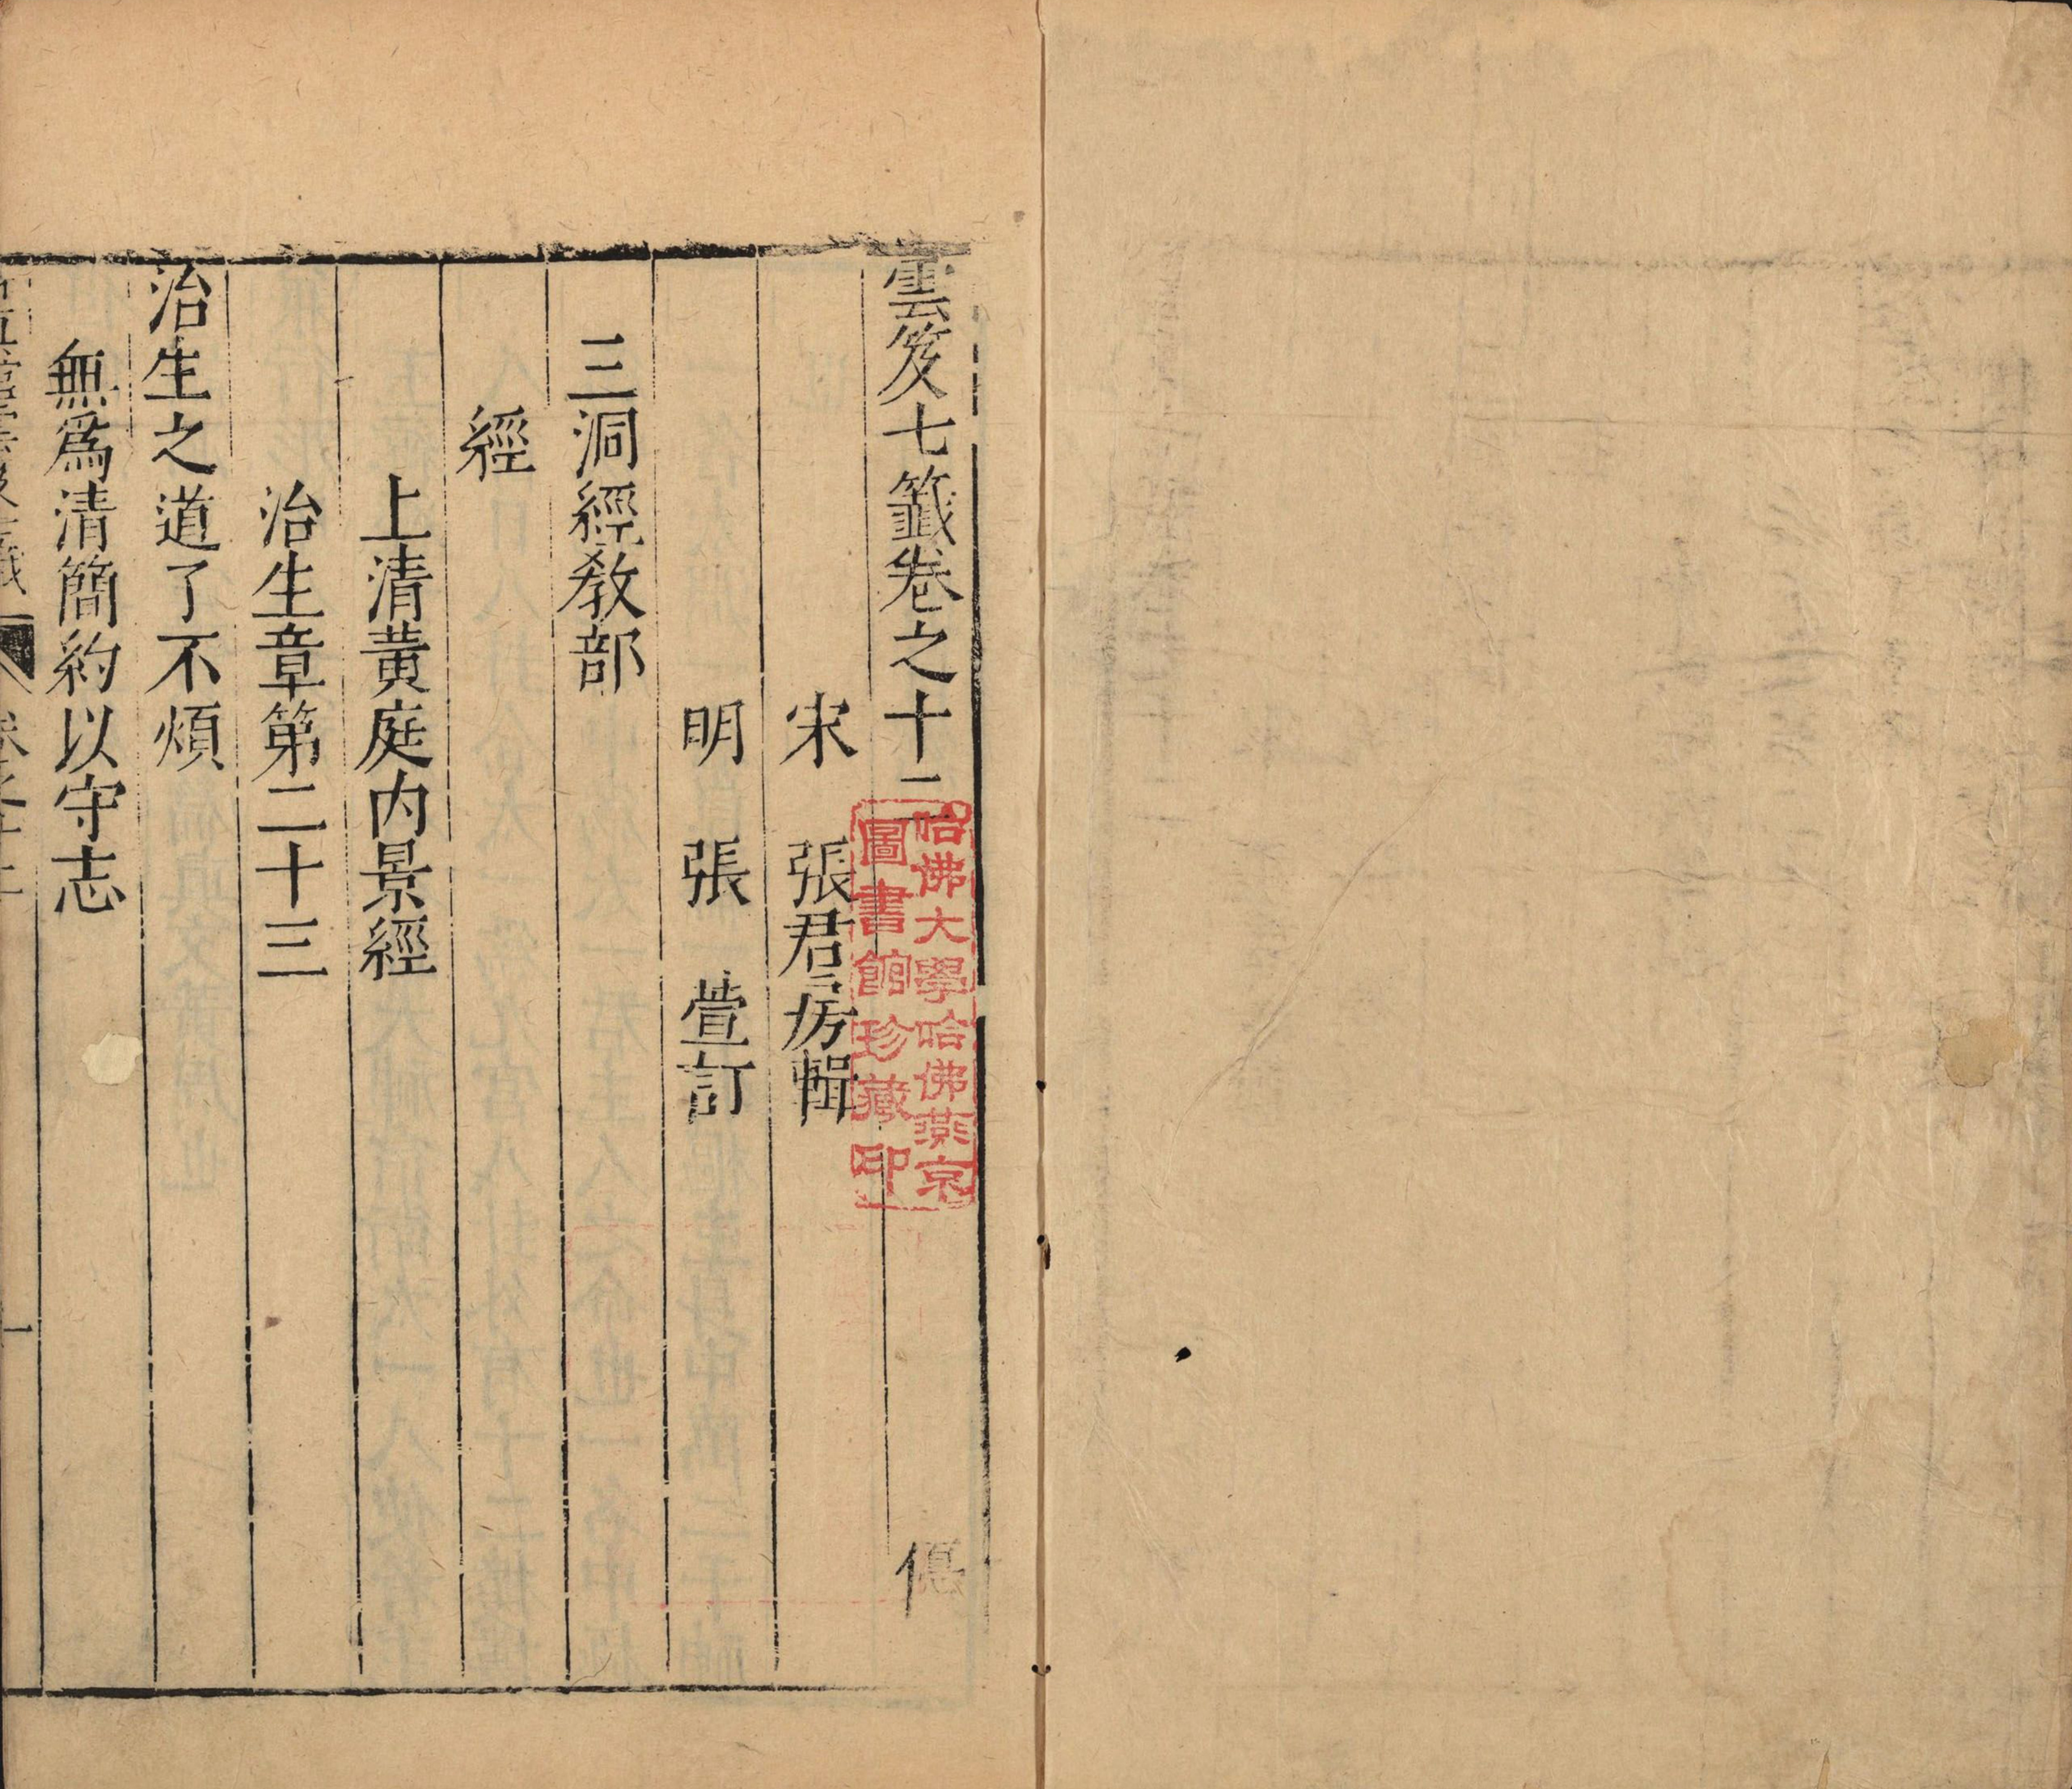 雲笈七籤卷之十二
宋　張君房輯
明　張　萱訂
三洞經敎部
經
上清黃庭内景經
治生章第二十三
治生之道了不煩
無爲清簡約以守志
哈佛大學哈佛燕京
圖書館珍藏印